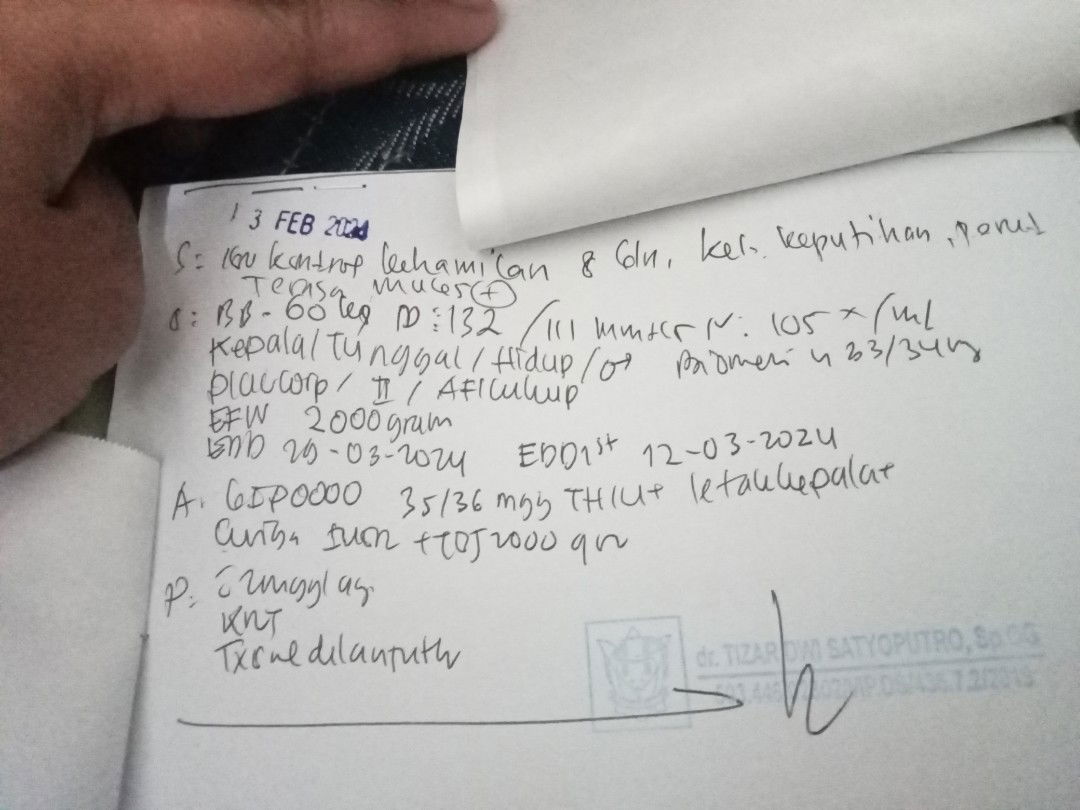 13 FEB 2024
S: Ibu kontrol kehamilan 8 bln, kel. keputihan, perut
Terasa mules (+)
O: BB - 60 kg TD: 132/111 mmHg N: 105 x/mt
Kepala/Tunggal/Hidup/♂ biometri 33/34
placcorp/II/AFI cukup
EFW 2000 gram
EDD 29-03-2024 EDD 1st 12-03-2024
A. GIP0000 35/36 mgg THIU+ letak kepala+
+TBJ 2000 gr
P: 2 mgg lag
KNT
Tx dilanjutk
dr. TIZAR DWI SATYOPUTRO, Sp.OG